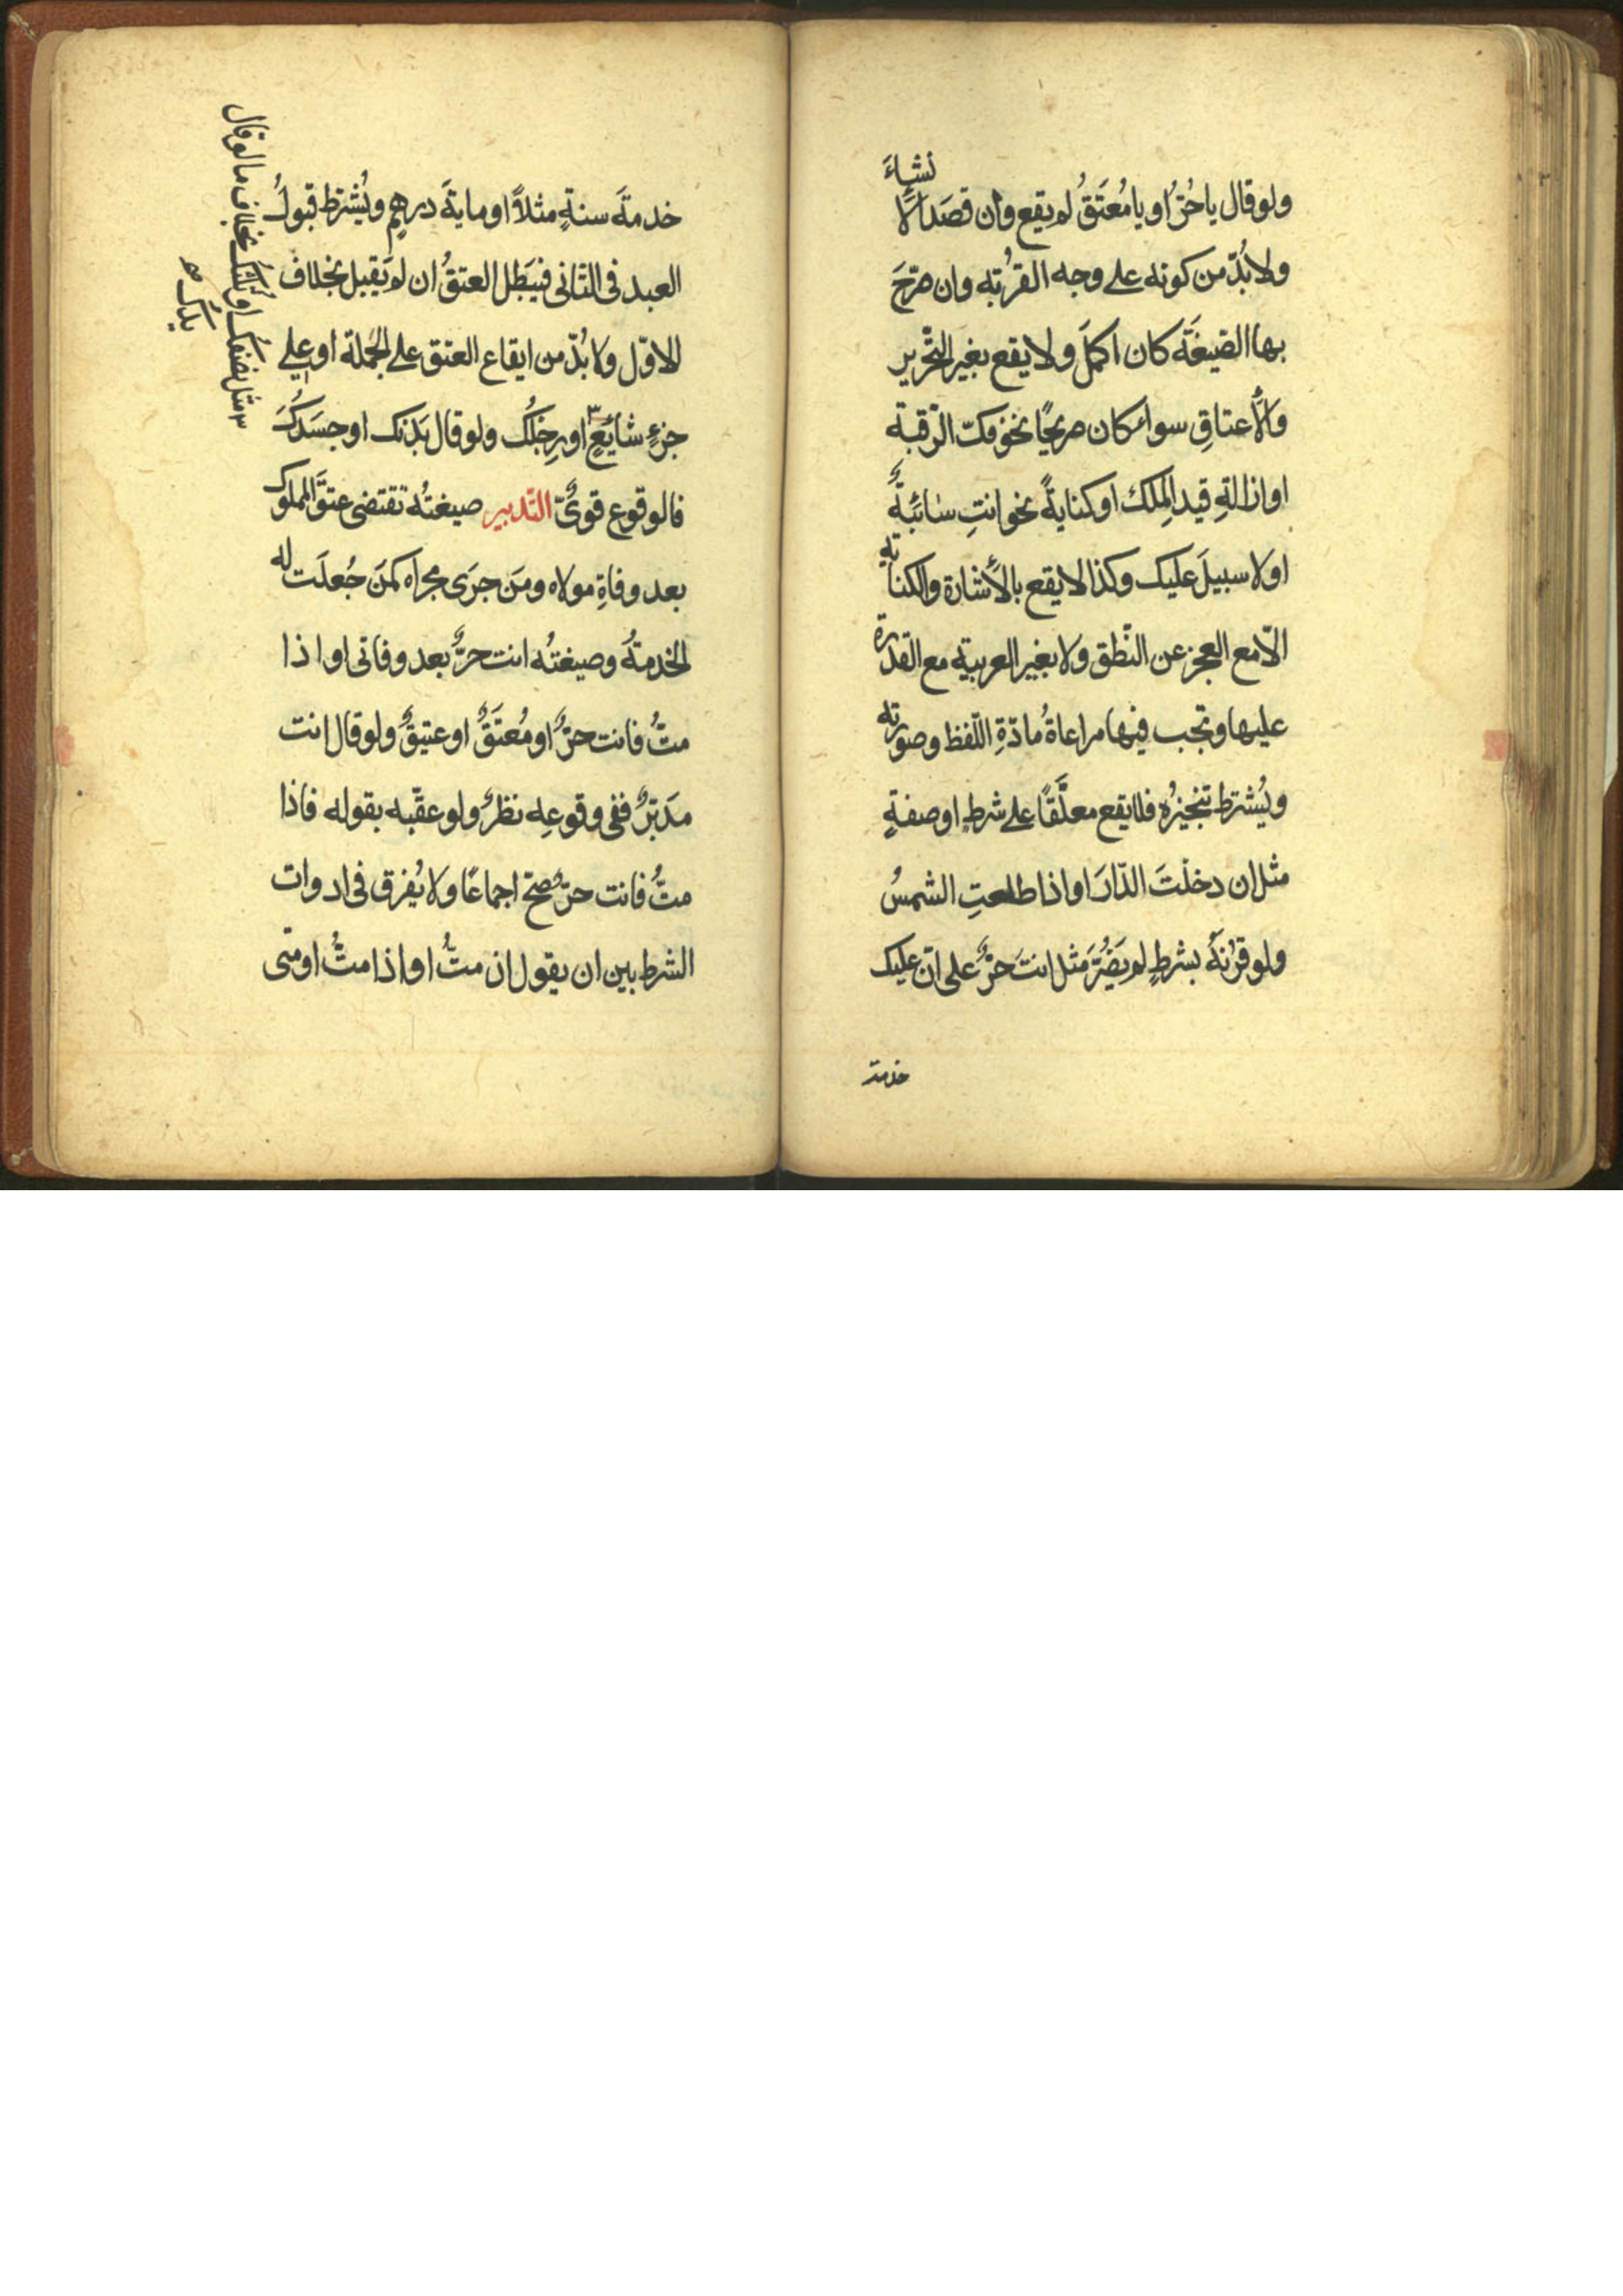 ولو قال ياحُرُّ او يا مُعتَقُ لم يقع وان قصَدَ الأنشاءَ
ولا بُدّ من كونه على وجه القُربة وان صرّحَ
بها الصّيغَة كان اكملَ ولا يقع بغير التّحرير
والأعتاقِ سواء كان صريحًا نحو فكّ الرّقبة
او ازالةِ قيد المِلك او كنايةً نحو انتِ سائبةٌ
او لا سبيلَ عليك وكذا لا يقع بالأشارة والكتابة
الّا مع العجز عن النّطق ولا بغير العربية مع القدرة
عليها وتجب فيها مراعاةُ مادّةِ اللّفظ وصورته
ويُشترط تنجيزُه فلا يقع معلَّقًا على شرطٍ او صفةٍ
مثل ان دخلتَ الدّارَ او اذا طلعتِ الشمسُ
ولو قرنَهُ بشرطٍ لم يَضُرَّ مثل انتَ حرٌّ على انّ عليك
خدمة
خدمةَ سنةٍ مثلاً او مايةَ درهمٍ ويُشترط قبولُ
العبد فى الثانى فيَبطل العتقُ ان لم يَقبل بخلاف
الاوّل ولا بُدّ من ايقاع العتق على الجُملة او على
جزءٍ شائعٍ ٣ او رِجْلك ولو قال بَدَنك او جسَدُكَ
فالوقوع قوىٌّ التّدبير صيغتُه تقتضى عتقَ المملوك
بعد وفاةِ مولاه ومَن جرَى مجراه كمَن جُعلَت له
الخدمةُ وصيغتُه انت حرٌّ بعد وفاتى او اذا
متُّ فانت حرٌّ او مُعتَقٌ او عتيقٌ ولو قال انت
مدَبّرٌ ففى وقوعِه نظرٌ ولو عقّبه بقوله فاذا
متُّ فانت حرٌّ صحّ اجماعًا ولا يُفرق فى ادوات
الشرط بين ان يقول ان متُّ او اذا متُّ او متى
٣ مثل نصفك او ثلثك بخلاف ما لو قال
يدك صح